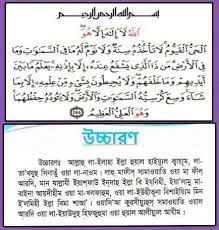 بسم الله الرحمن الرحيم
الله لا إله إلا هو
الحي القيوم لا تأخذه سنة ولا نوم له ما في السموات وما
في الأرض من ذا الذي يشفع عنده إلا بإذنه يعلم ما بين
أيديهم وما خلفهم ولا يحيطون بشيء من علمه إلا بما
شاء وسع كرسيه السموات والأرض ولا يئوده حفظهما
وهو العلي العظيم
উচ্চারণ
উচ্চারণঃ আল্লাহু লা-ইলাহা ইল্লা হুয়াল হাইয়ুল ক্বাইয়ূম, লা-
তা'খুযুহু সিনাতুঁ ওয়া লা-নাওম। লাহু মাফিস সামাওয়াতি ওয়া মা ফীল
আরদি, মান যাল্লাযী ইয়াশফাউ ইনদাহু ইল্লা বি ইযনিহী, ইয়া'লামু মা-
বাইনা আয়দীহীম ওয়া মা-খলফাহুম, ওয়া লা-ইউহীতূনা বিশাইয়িম মিন
ই'লমিহী ইল্লা বিমা শাআ'। ওয়াসি'আ কুরসীয়ুহুস সামাওয়াতি ওয়াল
আরদি ওয়া লা-ইয়াউদুহু হিফযুহুমা ওয়া হুয়াল আলীয়ুল আযীম।